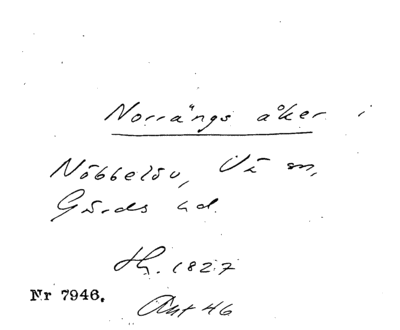 Norrängs åker i
Nöbbelöv, Vä sn,
Gärds hd.
Sk. 1827
Nr 7946.
Akt 46